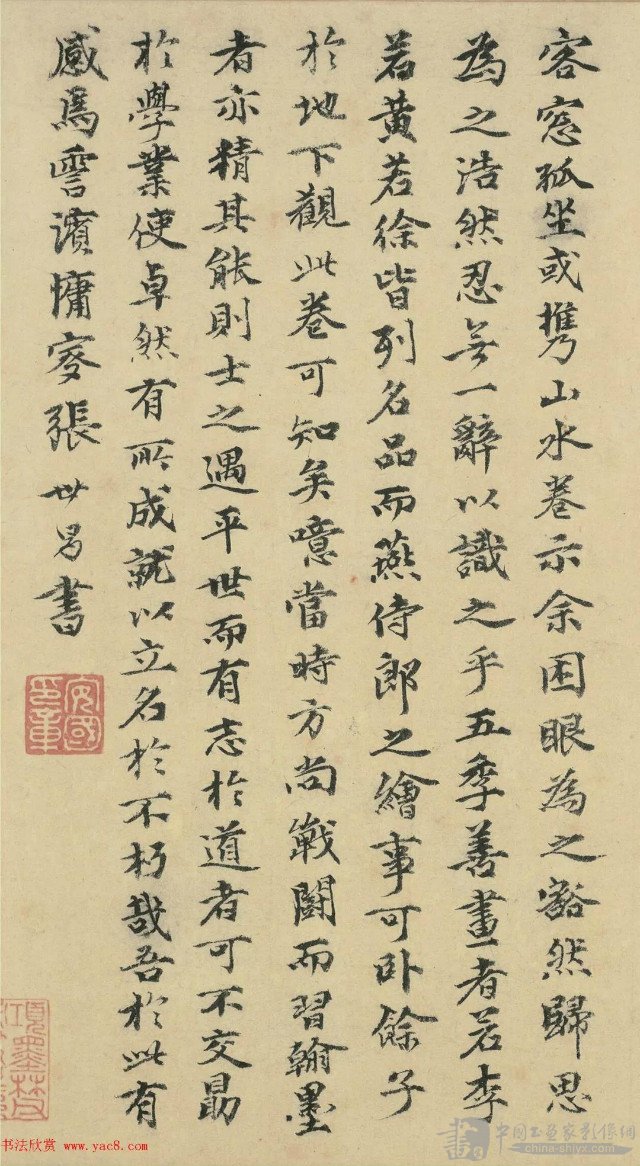 客窓孤坐或携山水卷示余困眼為之豁然歸思
為之浩然忍無一辭以識之乎五季善畫者若李
若黃若徐皆列名品而燕侍郎之繪事可卧餘子
於地下觀此卷可知矣噫當時方尚戰鬪而習翰墨
者亦精其能則士之遇平世而有志於道者可不交勗
於學業使卓然有所成就以立名於不朽哉吾於此有
感焉霅濱慵叟張世昌書
安國
書法欣赏 www.yac8.com
中国书画家影像网
china-shyx.com